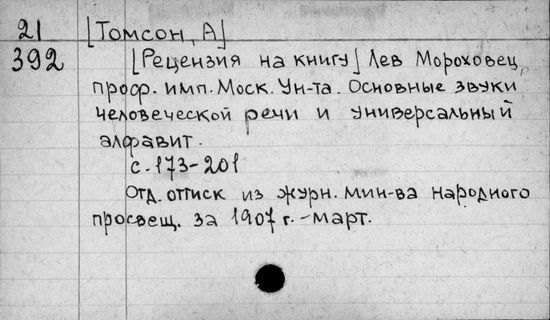 21 [Томсон, А]
392 [Рецензия на книгу] Лев Мороховец,
проф. имп. Моск. Ун-та. Основные звуки
человеческой речи и универсальный
алфавит.
с. 173-201
Отд. оттиск из журн. мин-ва народного
просвещ. за 1907 г. - март.